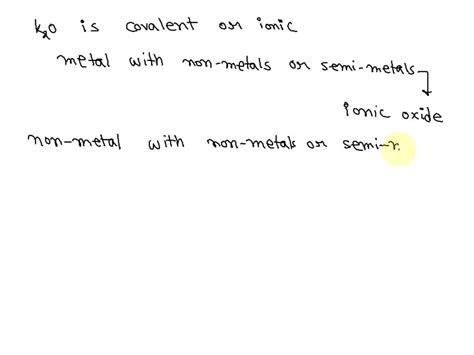 K₂O is covalent or ionic
metal with non-metals or semi-metals
ionic oxide
non-metal with non-metals or semi-